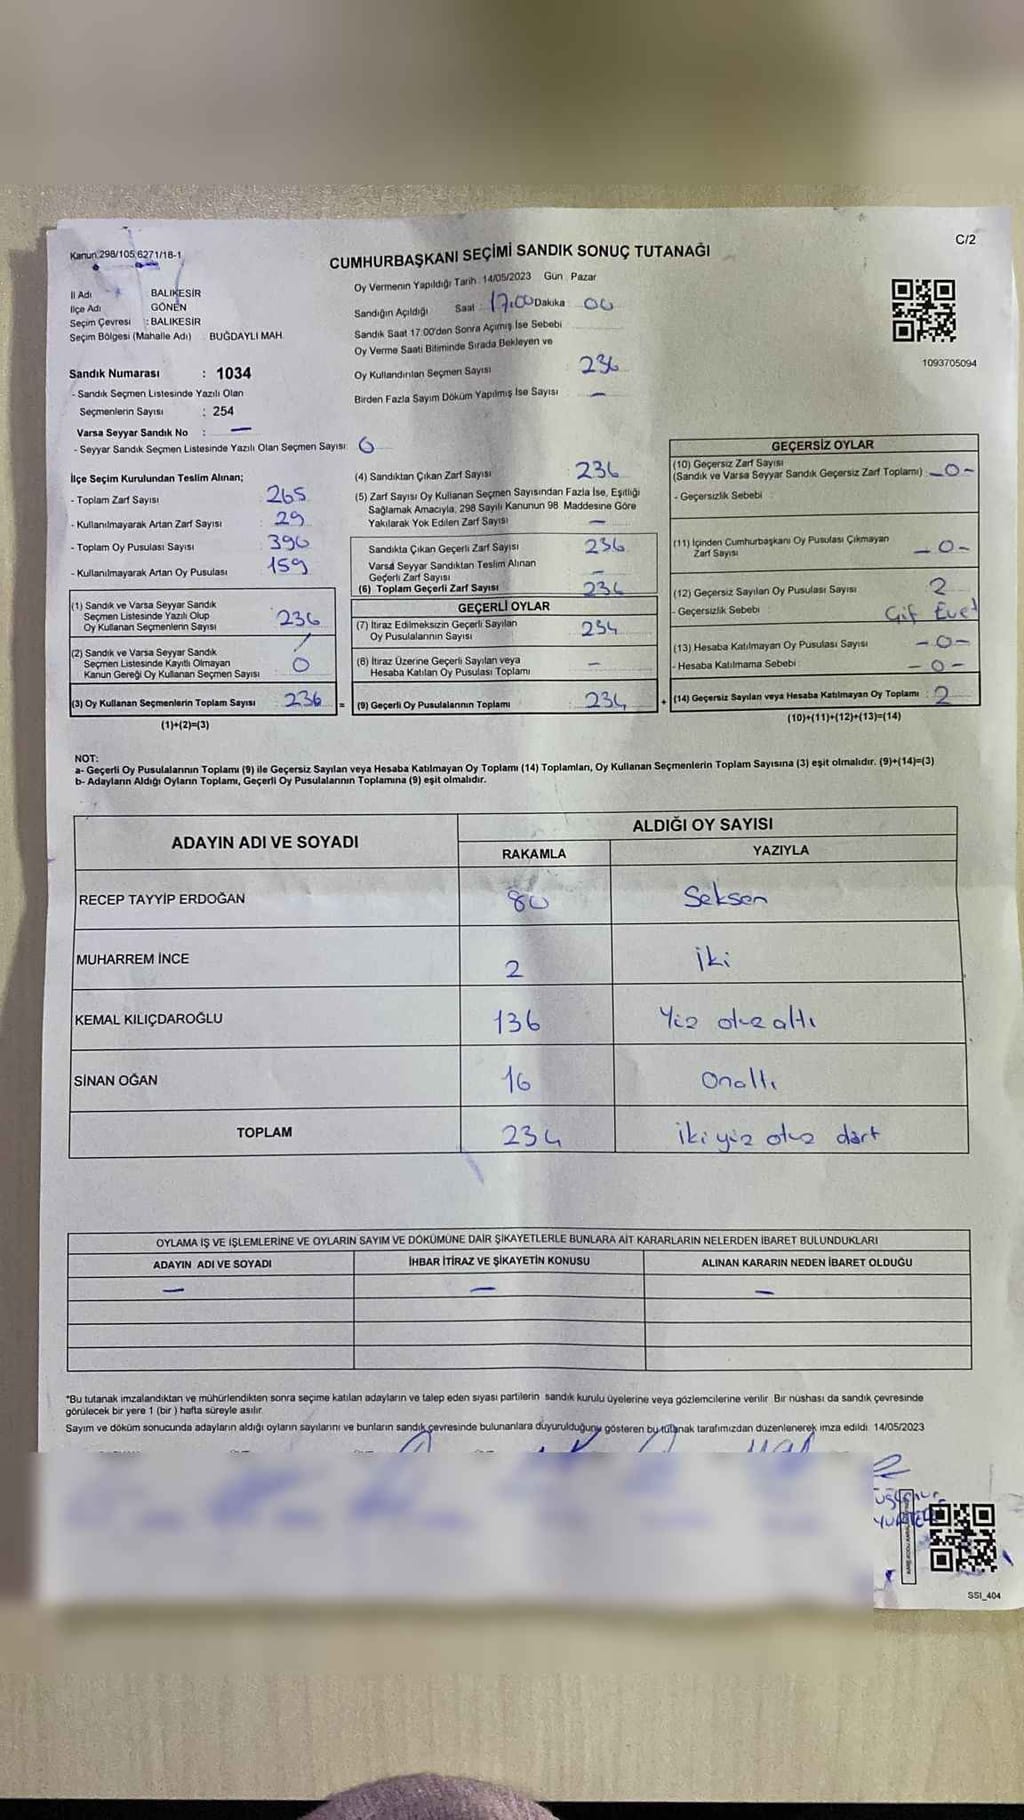 Kanun 298/105,6271/18-1
C/2
CUMHURBAŞKANI SEÇİMİ SANDIK SONUÇ TUTANAĞI
İl Adı BALIKESİR
İlçe Adı GÖNEN
Seçim Çevresi : BALIKESİR
Seçim Bölgesi (Mahalle Adı) BUĞDAYLI MAH.
Sandık Numarası : 1034
- Sandık Seçmen Listesinde Yazılı Olan
Seçmenlerin Sayısı : 254
Varsa Seyyar Sandık No : —
- Seyyar Sandık Seçmen Listesinde Yazılı Olan Seçmen Sayısı: 0
Oy Vermenin Yapıldığı Tarih 14/05/2023 Gün Pazar
Sandığın Açıldığı Saat : 17:00 Dakika 00
Sandık Saat 17.00'den Sonra Açımış İse Sebebi
Oy Verme Saati Bitiminde Sırada Bekleyen ve
Oy Kullandırılan Seçmen Sayısı 236
Birden Fazla Sayım Döküm Yapılmış İse Sayısı —
1093705094
İlçe Seçim Kurulundan Teslim Alınan;
- Toplam Zarf Sayısı 265
- Kullanılmayarak Artan Zarf Sayısı : 29
- Toplam Oy Pusulası Sayısı : 390
- Kullanılmayarak Artan Oy Pusulası : 159
(1) Sandık ve Varsa Seyyar Sandık
Seçmen Listesinde Yazılı Olup
Oy Kullanan Seçmenlerin Sayısı 236
(2) Sandık ve Varsa Seyyar Sandık
Seçmen Listesinde Kayıtlı Olmayan
Kanun Gereği Oy Kullanan Seçmen Sayısı 0
(3) Oy Kullanan Seçmenlerin Toplam Sayısı 236 =
(1)+(2)=(3)
(4) Sandıktan Çıkan Zarf Sayısı 236
(5) Zarf Sayısı Oy Kullanan Seçmen Sayısından Fazla İse, Eşitliği
Sağlamak Amacıyla, 298 Sayılı Kanunun 98 Maddesine Göre
Yakılarak Yok Edilen Zarf Sayısı —
Sandıkta Çıkan Geçerli Zarf Sayısı 236
Varsa Seyyar Sandıktan Teslim Alınan
Geçerli Zarf Sayısı —
(6) Toplam Geçerli Zarf Sayısı 236
GEÇERLİ OYLAR
(7) İtiraz Edilmeksizin Geçerli Sayılan
Oy Pusulalarının Sayısı : 234
(8) İtiraz Üzerine Geçerli Sayılan veya
Hesaba Katılan Oy Pusulası Toplamı —
(9) Geçerli Oy Pusulalarının Toplamı : 234 +
GEÇERSİZ OYLAR
(10) Geçersiz Zarf Sayısı
(Sandık ve Varsa Seyyar Sandık Geçersiz Zarf Toplamı) -0-
- Geçersizlik Sebebi :
(11) İçinden Cumhurbaşkanı Oy Pusulası Çıkmayan
Zarf Sayısı -0-
(12) Geçersiz Sayılan Oy Pusulası Sayısı : 2
- Geçersizlik Sebebi : Çif Evet
(13) Hesaba Katılmayan Oy Pusulası Sayısı -0-
- Hesaba Katılmama Sebebi -0-
(14) Geçersiz Sayılan veya Hesaba Katılmayan Oy Toplamı : 2
(10)+(11)+(12)+(13)=(14)
NOT:
a- Geçerli Oy Pusulalarının Toplamı (9) ile Geçersiz Sayılan veya Hesaba Katılmayan Oy Toplamı (14) Toplamları, Oy Kullanan Seçmenlerin Toplam Sayısına (3) eşit olmalıdır. (9)+(14)=(3)
b- Adayların Aldığı Oyların Toplamı, Geçerli Oy Pusulalarının Toplamına (9) eşit olmalıdır.
ADAYIN ADI VE SOYADI
ALDIĞI OY SAYISI
RAKAMLA YAZIYLA
RECEP TAYYİP ERDOĞAN 80 Seksen
MUHARREM İNCE 2 iki
KEMAL KILIÇDAROĞLU 136 Yüz otuz altı
SİNAN OĞAN 16 Onaltı
TOPLAM 234 iki yüz otuz dört
OYLAMA İŞ VE İŞLEMLERİNE VE OYLARIN SAYIM VE DÖKÜMÜNE DAİR ŞİKAYETLERLE BUNLARA AİT KARARLARIN NELERDEN İBARET BULUNDUKLARI
ADAYIN ADI VE SOYADI İHBAR İTİRAZ VE ŞİKAYETİN KONUSU ALINAN KARARIN NEDEN İBARET OLDUĞU
— — —
*Bu tutanak imzalandıktan ve mühürlendikten sonra seçime katılan adayların ve talep eden siyasi partilerin sandık kurulu üyelerine veya gözlemcilerine verilir. Bir nüshası da sandık çevresinde
görülecek bir yere 1 (bir ) hafta süreyle asılır.
Sayım ve döküm sonucunda adayların aldığı oyların sayılarını ve bunların sandık çevresinde bulunanlara duyurulduğunu gösteren bu tutanak tarafımızdan düzenlenerek imza edildi. 14/05/2023
SSI_404